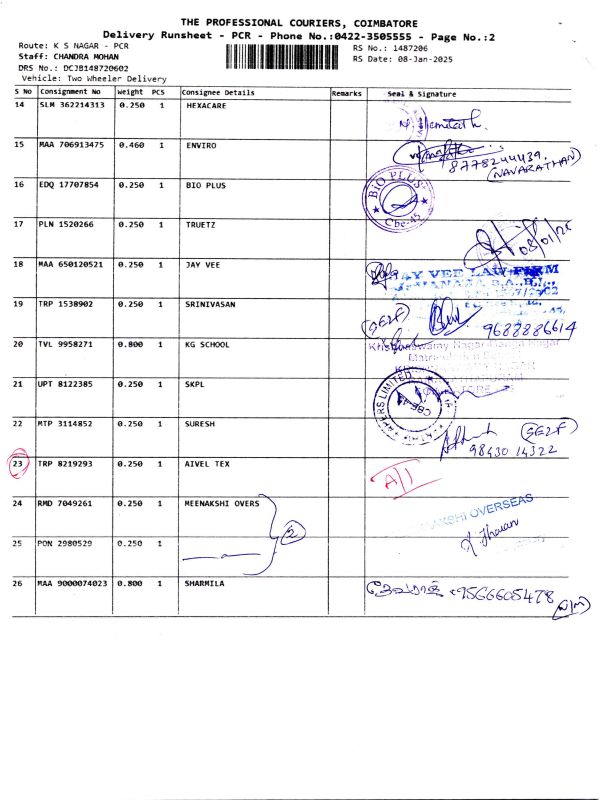 THE PROFESSIONAL COURIERS, COIMBATORE
Delivery Runsheet - PCR - Phone No.:0422-3505555 - Page No.:2
Route: K S NAGAR - PCR
RS No.: 1487206
Staff: CHANDRA MOHAN
RS Date: 08-Jan-2025
DRS No.: DCJB148720602
Vehicle: Two Wheeler Delivery
S No Consignment No Weight PCS Consignee Details Remarks Seal & Signature
14 SLM 362214313 0.250 1 HEXACARE
15 MAA 706913475 0.460 1 ENVIRO
8778244439.
(NAVARATHAN)
16 EDQ 17707854 0.250 1 BIO PLUS
BIO PLUS
Cbe-45
17 PLN 1520266 0.250 1 TRUETZ
08/01/25
18 MAA 650120521 0.250 1 JAY VEE
JAY VEE LAW FIRM
19 TRP 1538902 0.250 1 SRINIVASAN
(SELF)
9688886614
20 TVL 9958271 0.800 1 KG SCHOOL
21 UPT 8122385 0.250 1 SKPL
22 MTP 3114852 0.250 1 SURESH
(SELF)
98430 14322
23 TRP 8219293 0.250 1 AIVEL TEX
24 RMD 7049261 0.250 1 MEENAKSHI OVERS
2
AKSHI OVERSEAS
25 PON 2980529 0.250 1
26 MAA 9000074023 0.800 1 SHARMILA
9566605478